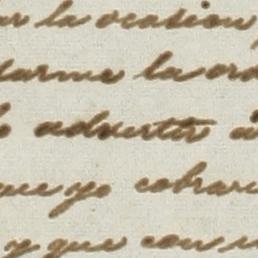 la ocasion
darme la
advertir
que yo cobrar
y que con